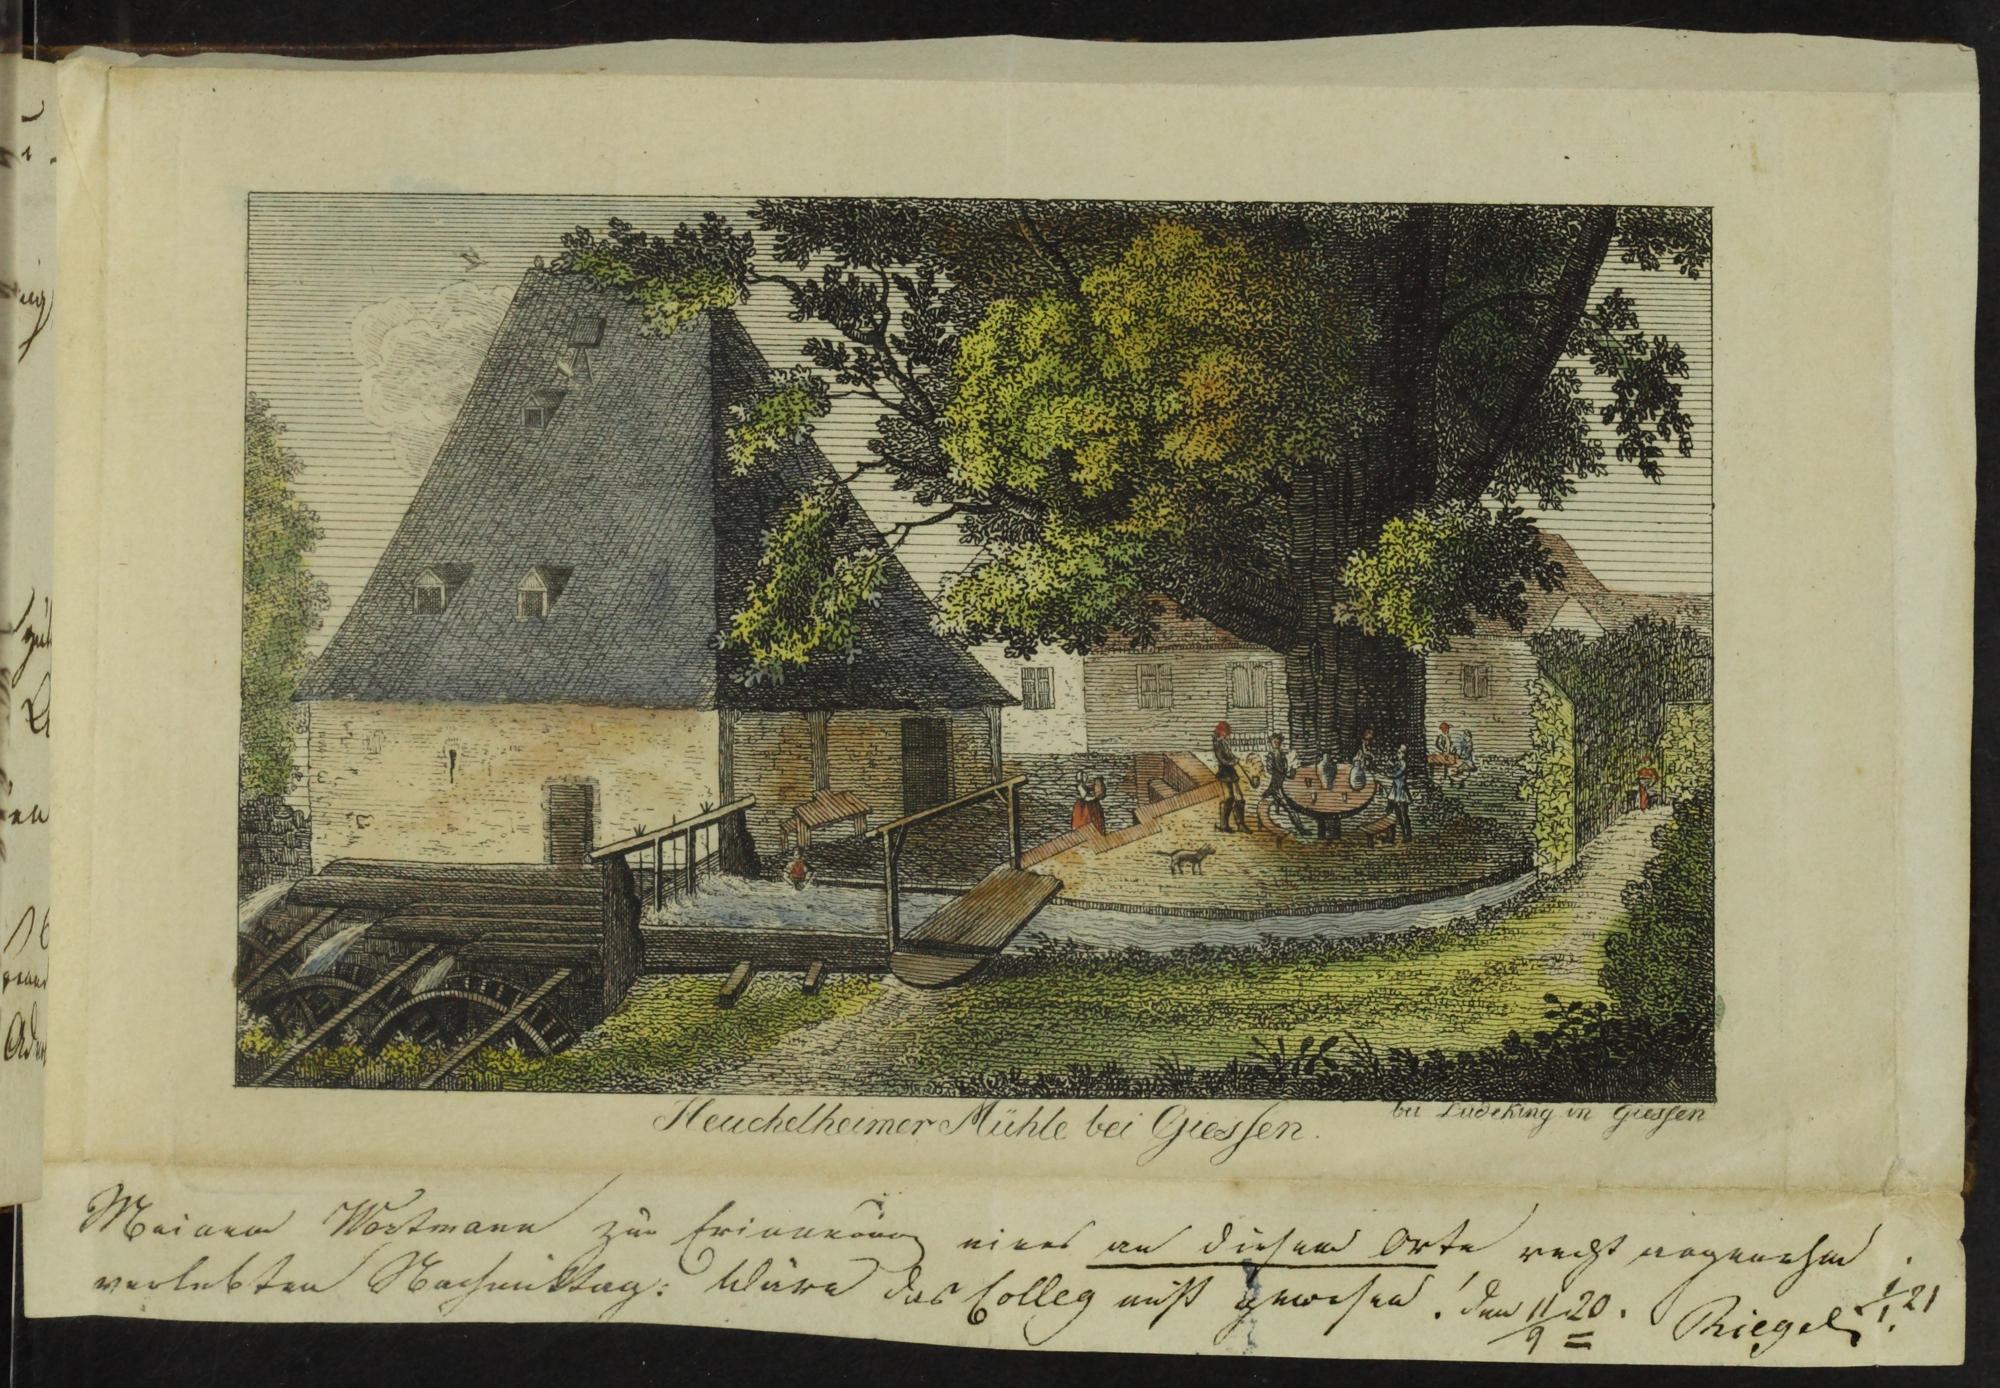 Heuchelheimer Mühle bei Giessen.
bei Lüdeking in Giessen
Meinem Wortmann zur Erinnerung eines an diesem Orte recht angenehm
verlebten Nachmittag: Wäre das Colleg nicht gewesen! den 11/9 20. Riegel 1/1. 21